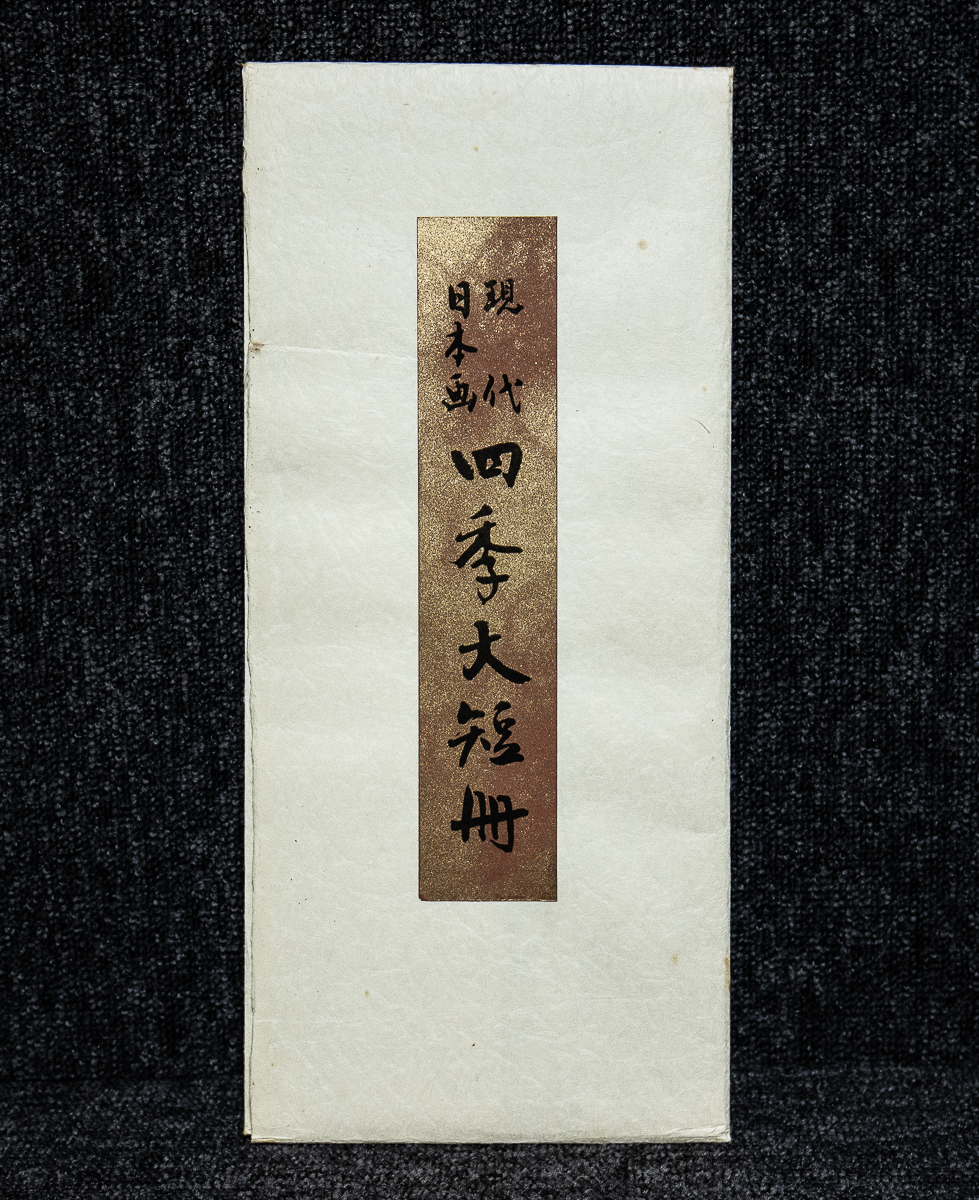 現代
日本画
四季大短冊